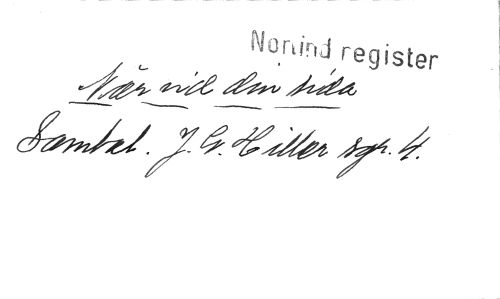 Nonind register
Nær vid din sida
Sambal. J. G. Hiller sgr. 4.